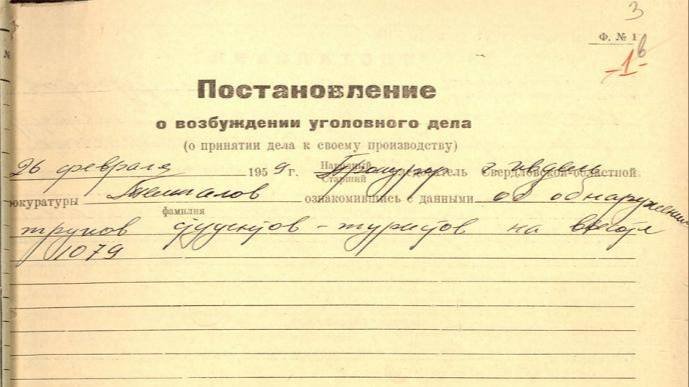 3
Ф. № 1
-1-
Постановление
о возбуждении уголовного дела
(о принятии дела к своему производству)
26 февраля 1959 г. Народный Старший Прокурор г. Ивдель Свердловской областной
рокуратуры Темпалов ознакомившись с данными об обнаружении
фамилия
трупов студентов - туристов на высоте
1079